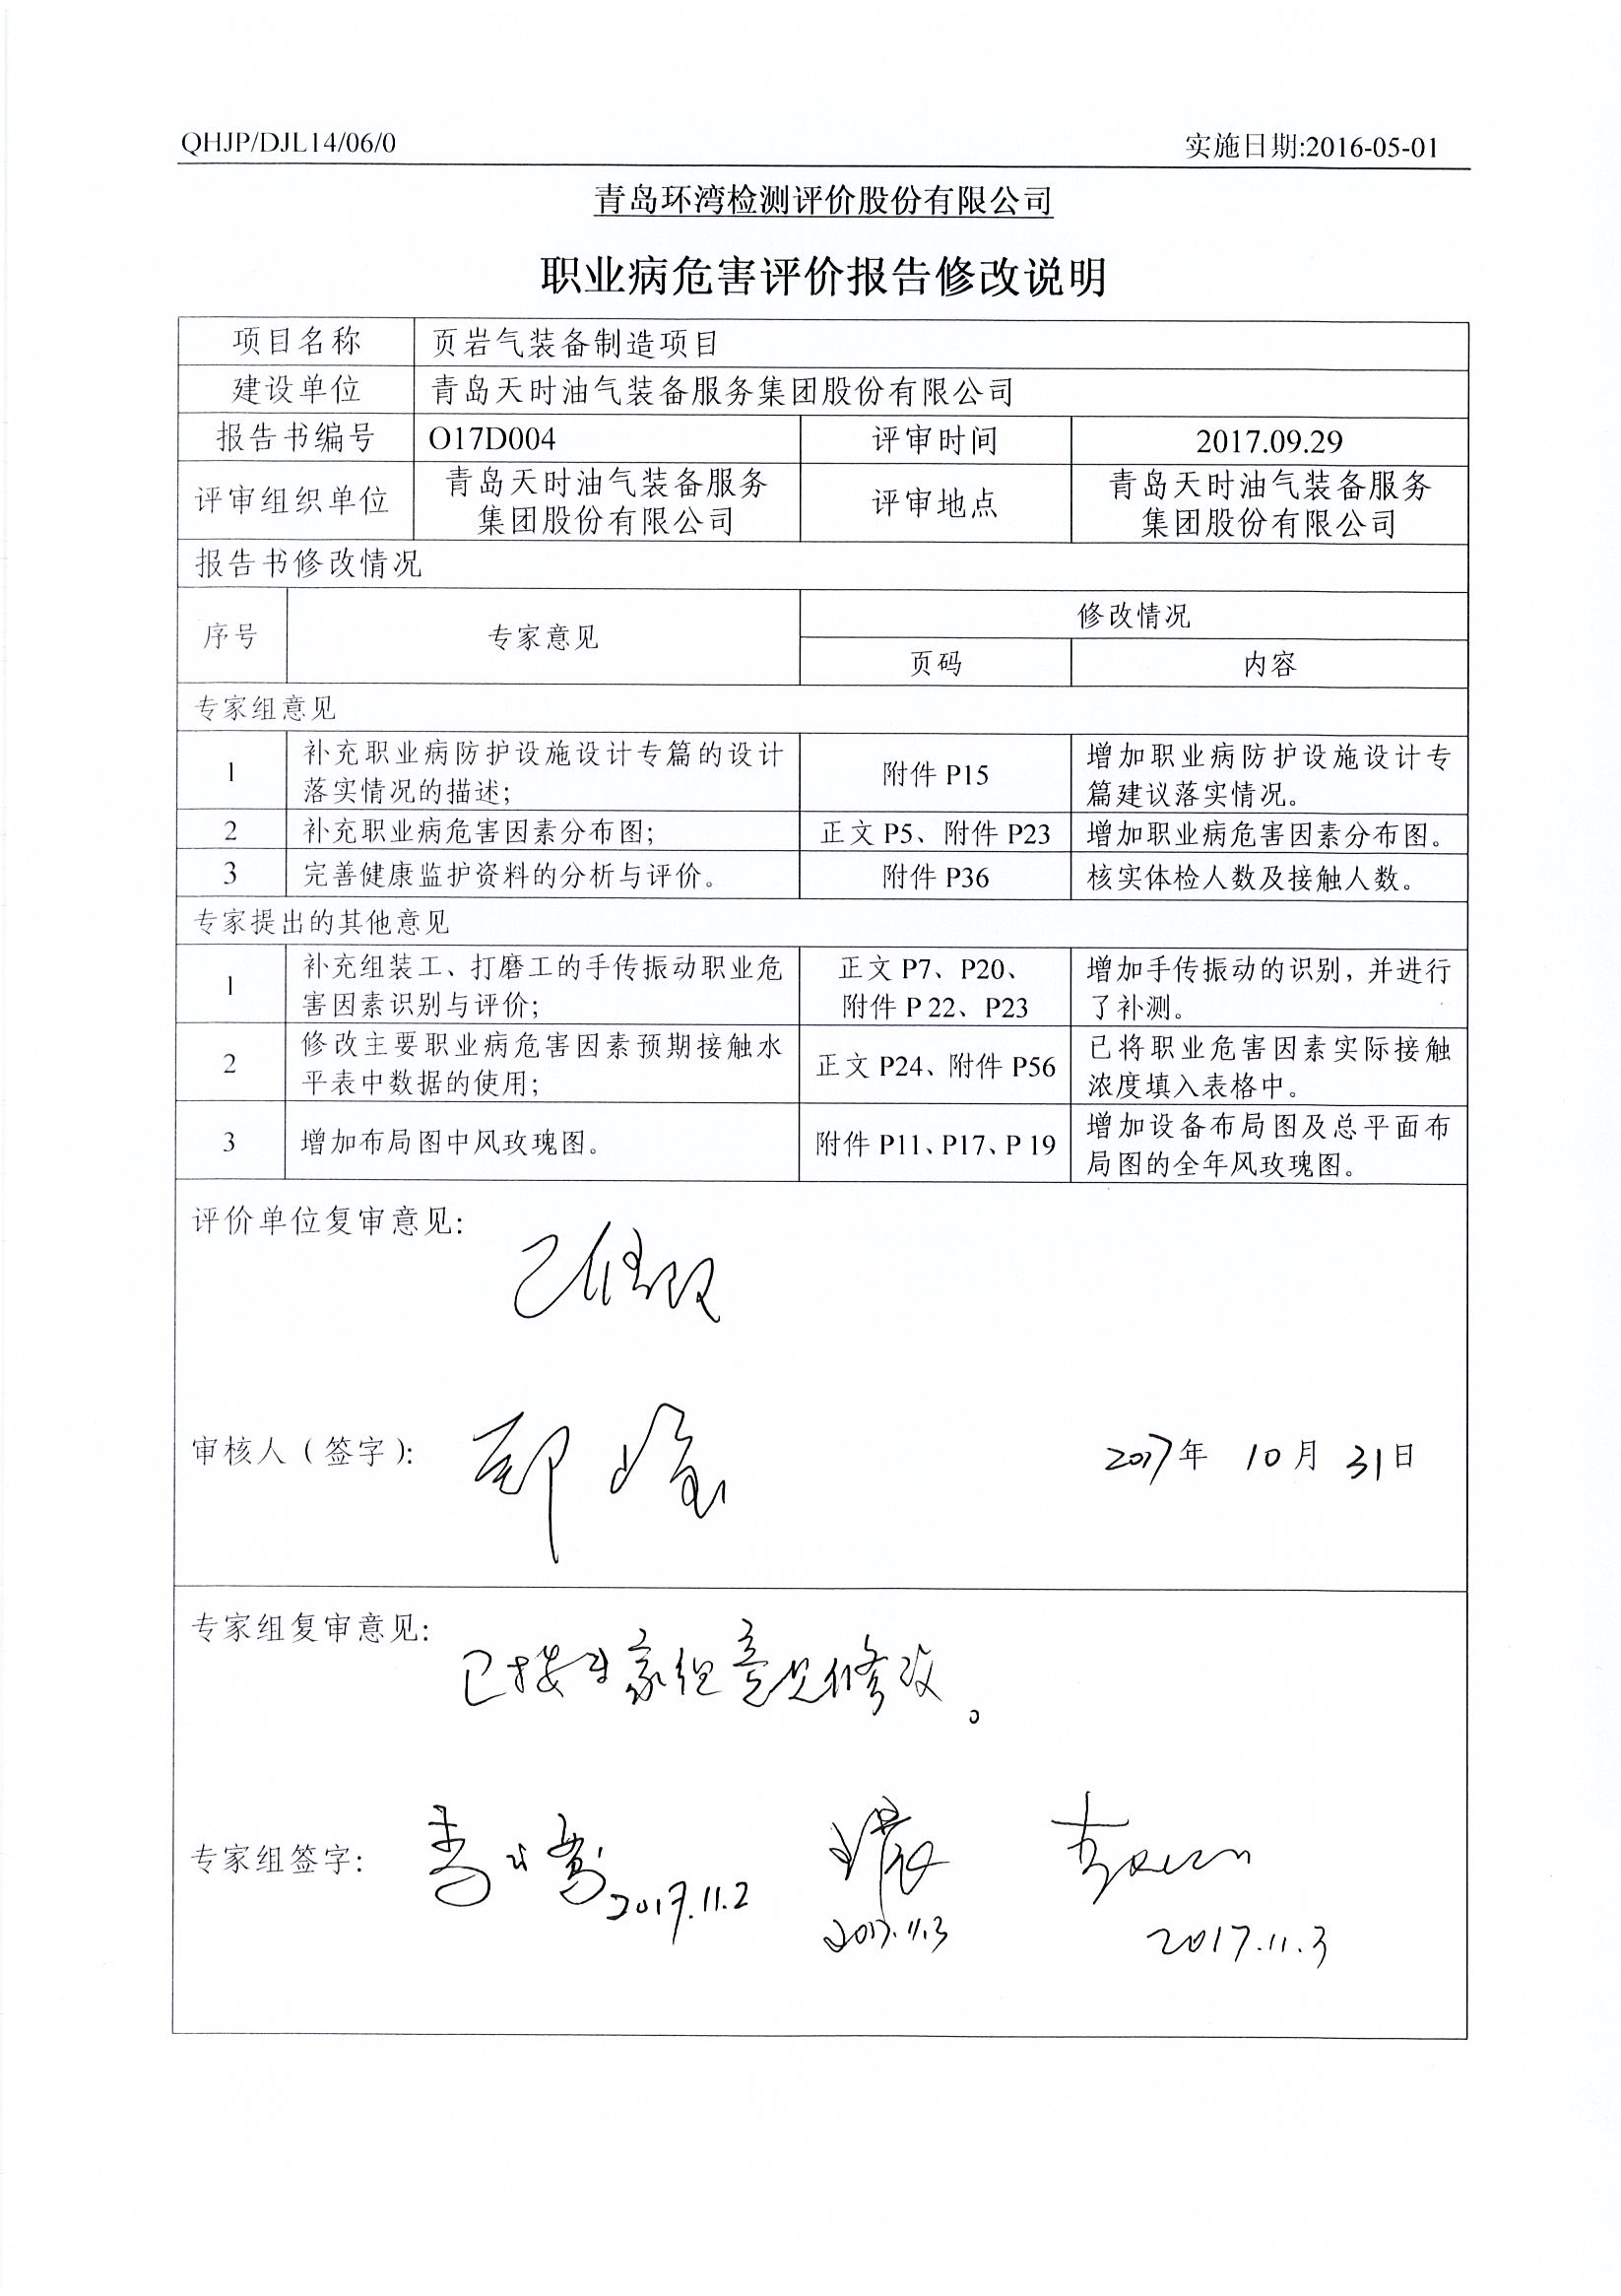 QHJP/DJL14/06/0 实施日期:2016-05-01
青岛环湾检测评价股份有限公司
职业病危害评价报告修改说明
项目名称 页岩气装备制造项目
建设单位 青岛天时油气装备服务集团股份有限公司
报告书编号 O17D004 评审时间 2017.09.29
评审组织单位 青岛天时油气装备服务
集团股份有限公司 评审地点 青岛天时油气装备服务
集团股份有限公司
报告书修改情况
序号 专家意见 修改情况
页码 内容
专家组意见
1 补充职业病防护设施设计专篇的设计
落实情况的描述; 附件 P15 增加职业病防护设施设计专
篇建议落实情况。
2 补充职业病危害因素分布图; 正文 P5、附件 P23 增加职业病危害因素分布图。
3 完善健康监护资料的分析与评价。 附件 P36 核实体检人数及接触人数。
专家提出的其他意见
1 补充组装工、打磨工的手传振动职业危
害因素识别与评价; 正文 P7、P20、
附件 P 22、P23 增加手传振动的识别,并进行
了补测。
2 修改主要职业病危害因素预期接触水
平表中数据的使用; 正文 P24、附件 P56 已将职业危害因素实际接触
浓度填入表格中。
3 增加布局图中风玫瑰图。 附件 P11、P17、P 19 增加设备布局图及总平面布
局图的全年风玫瑰图。
评价单位复审意见:
已修改
审核人(签字):
2017年 10月 31日
专家组复审意见:
已按专家组意见修改。
专家组签字:
2017.11.2
2017.11.3
2017.11.3